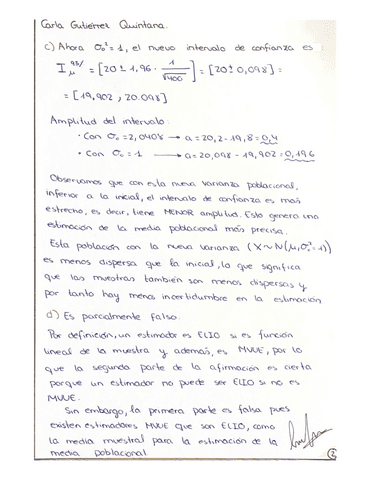 Carla Gutiérrez Quintana.
c) Ahora σ₀² = 1, el nuevo intervalo de confianza es
I_μ^95% = [20 ± 1,96 · 1/√400] = [20 ± 0,098] =
= [19,902 , 20.098]
Amplitud del intervalo:
· Con σ₀ = 2,0408 → a = 20,2 - 19,8 = 0,4
· Con σ₀ = 1 → a = 20,098 - 19,902 = 0,196
Observamos que con esta nueva varianza poblacional,
inferior a la inicial, el intervalo de confianza es más
estrecho, es decir, tiene MENOR amplitud. Esto genera una
estimación de la media poblacional más precisa.
Esta población con la nueva varianza (X ~ N(μ, σ₀² = 1))
es menos dispersa que la inicial, lo que significa
que las muestras también son menos dispersas y
por tanto hay menos incertidumbre en la estimación
d) Es parcialmente falso.
Por definición, un estimador es ELIO si es función
lineal de la muestra y además, es MVUE, por lo
que la segunda parte de la afirmación es cierta
porque un estimador no puede ser ELIO si no es
MVUE.
Sin embargo, la primera parte es falsa pues
existen estimadores MVUE que son ELIO, como
la media muestral para la estimación de la
media poblacional
2